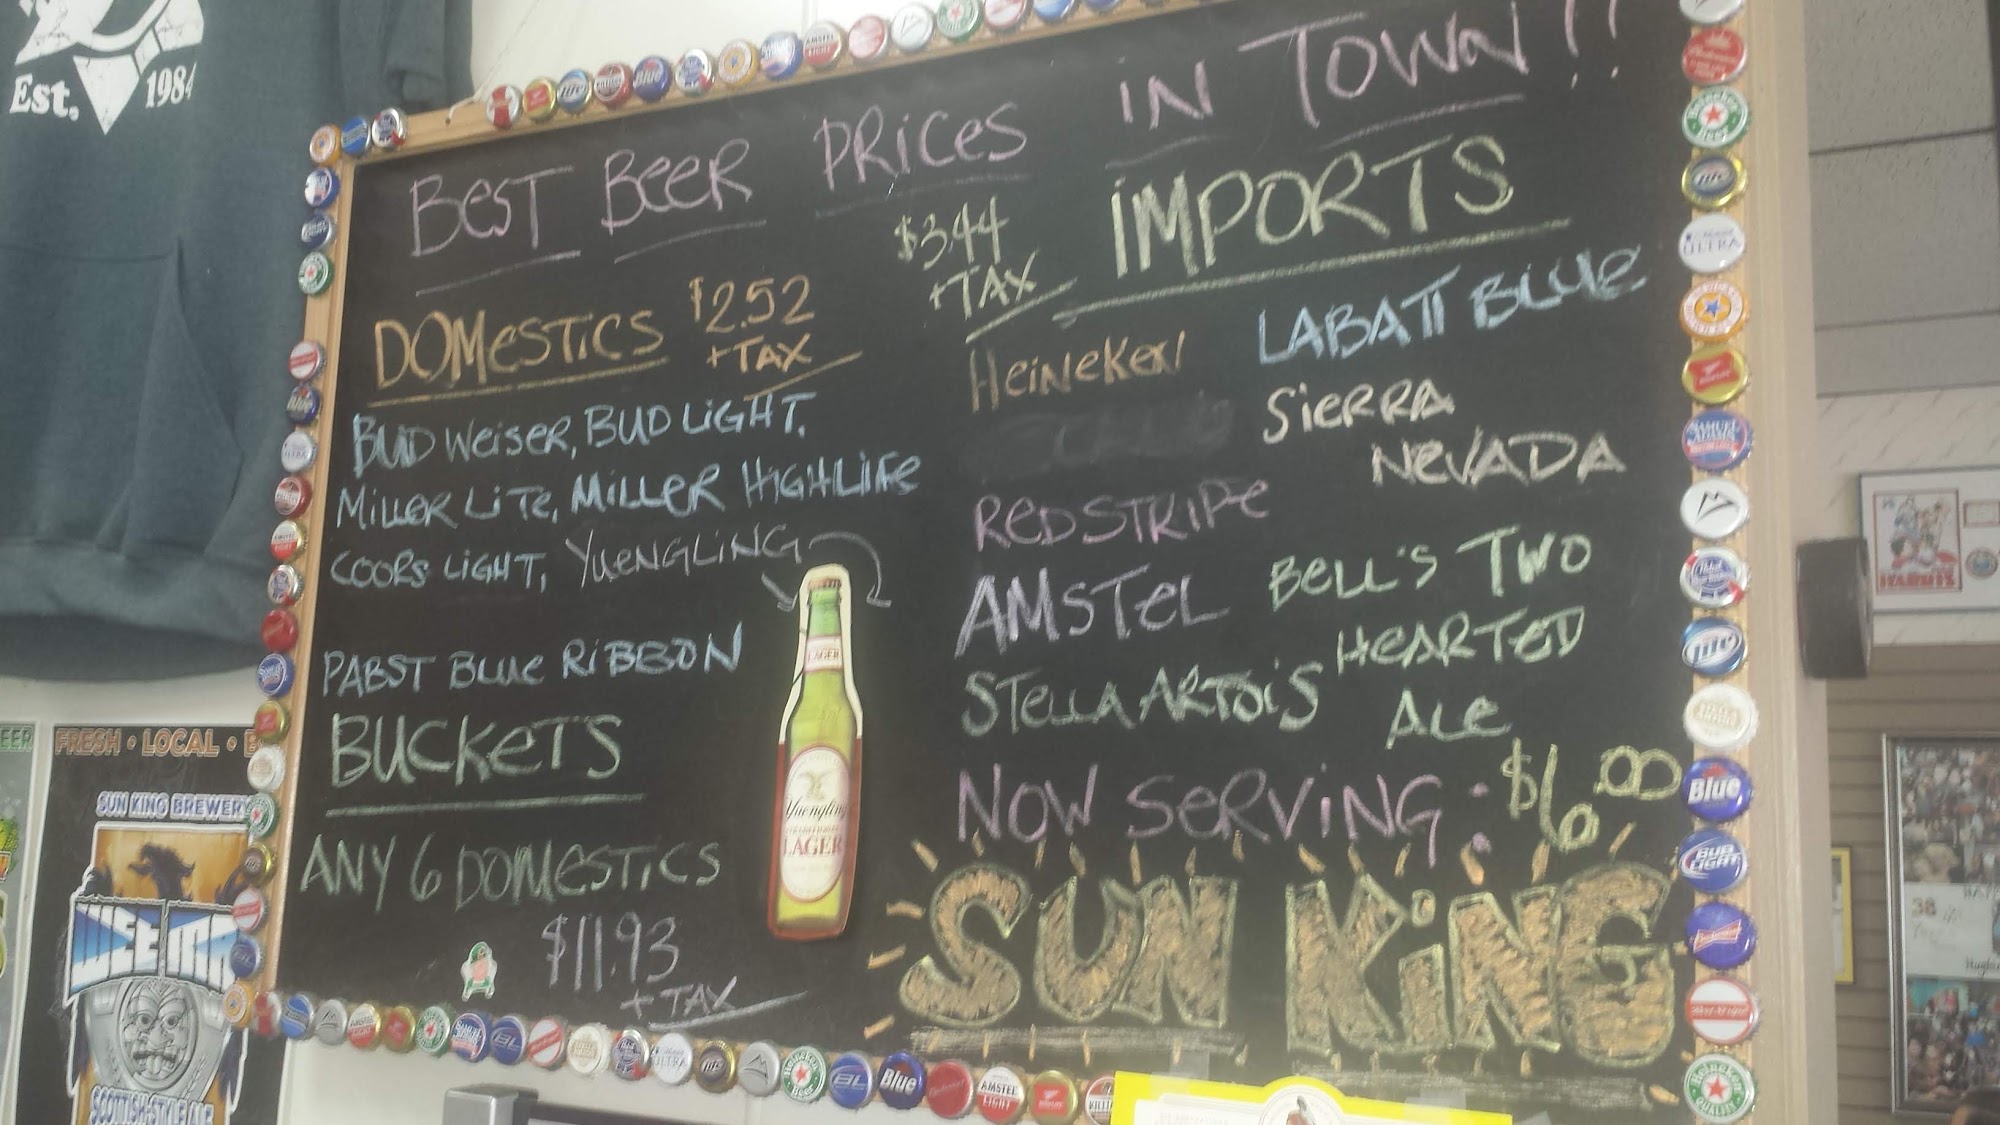 Est. 1984
BEST BEER PRICES IN TOWN!!
DOMESTICS $2.52
+TAX
BUDWEISER, BUD LIGHT,
MILLER LITE, MILLER HIGHLIFE
COORS LIGHT, YUENGLING
PABST BLUE RIBBON
BUCKETS
ANY 6 DOMESTICS
$11.93
+ TAX
LAGER
Yuengling
LAGER
$3.44
+TAX
IMPORTS
HEINEKEN
LABATT BLUE
SIERRA
NEVADA
REDSTRIPE
AMSTEL
BELL'S TWO
HEARTED
ALE
STELLA ARTOIS
NOW SERVING: $6.00
SUN KING
EER
FRESH • LOCAL • B
SUN KING BREWERY
WEE MA
SCOTTISH-STYLE ALE
Blue
BUD LIGHT
Heineken
ULTRA
SAMUEL ADAMS
Lite
AMSTEL LIGHT
BL
38